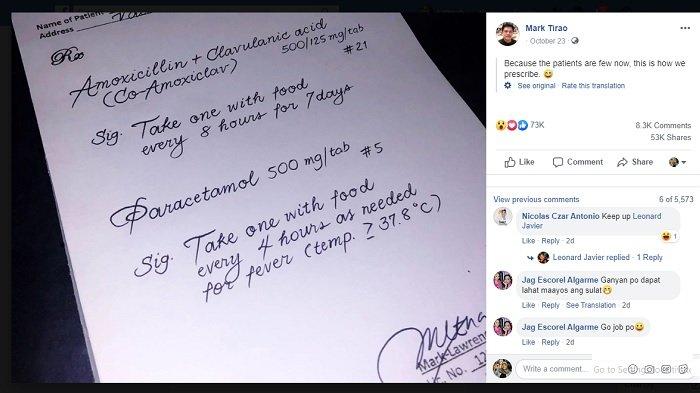 Name of Patient
Address
Rx
Amoxicillin + Clavulanic acid
(Co-Amoxiclav) 500/125 mg/tab
#21
Sig. Take one with food
every 8 hours for 7 days
Paracetamol 500 mg/tab #5
Sig. Take one with food
every 4 hours as needed
for fever (temp. ≥ 37.8°C)
Mark Lawrenc
No. 12
Mark Tirao
October 23
Because the patients are few now, this is how we
prescribe. 😄
See original · Rate this translation
73K
8.3K Comments
53K Shares
Like Comment Share
View previous comments 6 of 5,573
Nicolas Czar Antonio Keep up Leonard
Javier
1
Like · Reply · 2d
Leonard Javier replied · 1 Reply
Jag Escorel Algarme Ganyan po dapat
lahat maayos ang sulat😁
Like · Reply · See Translation · 2d
Jag Escorel Algarme Go job po😄
Like · Reply · 2d
Write a comment...
Go to Se